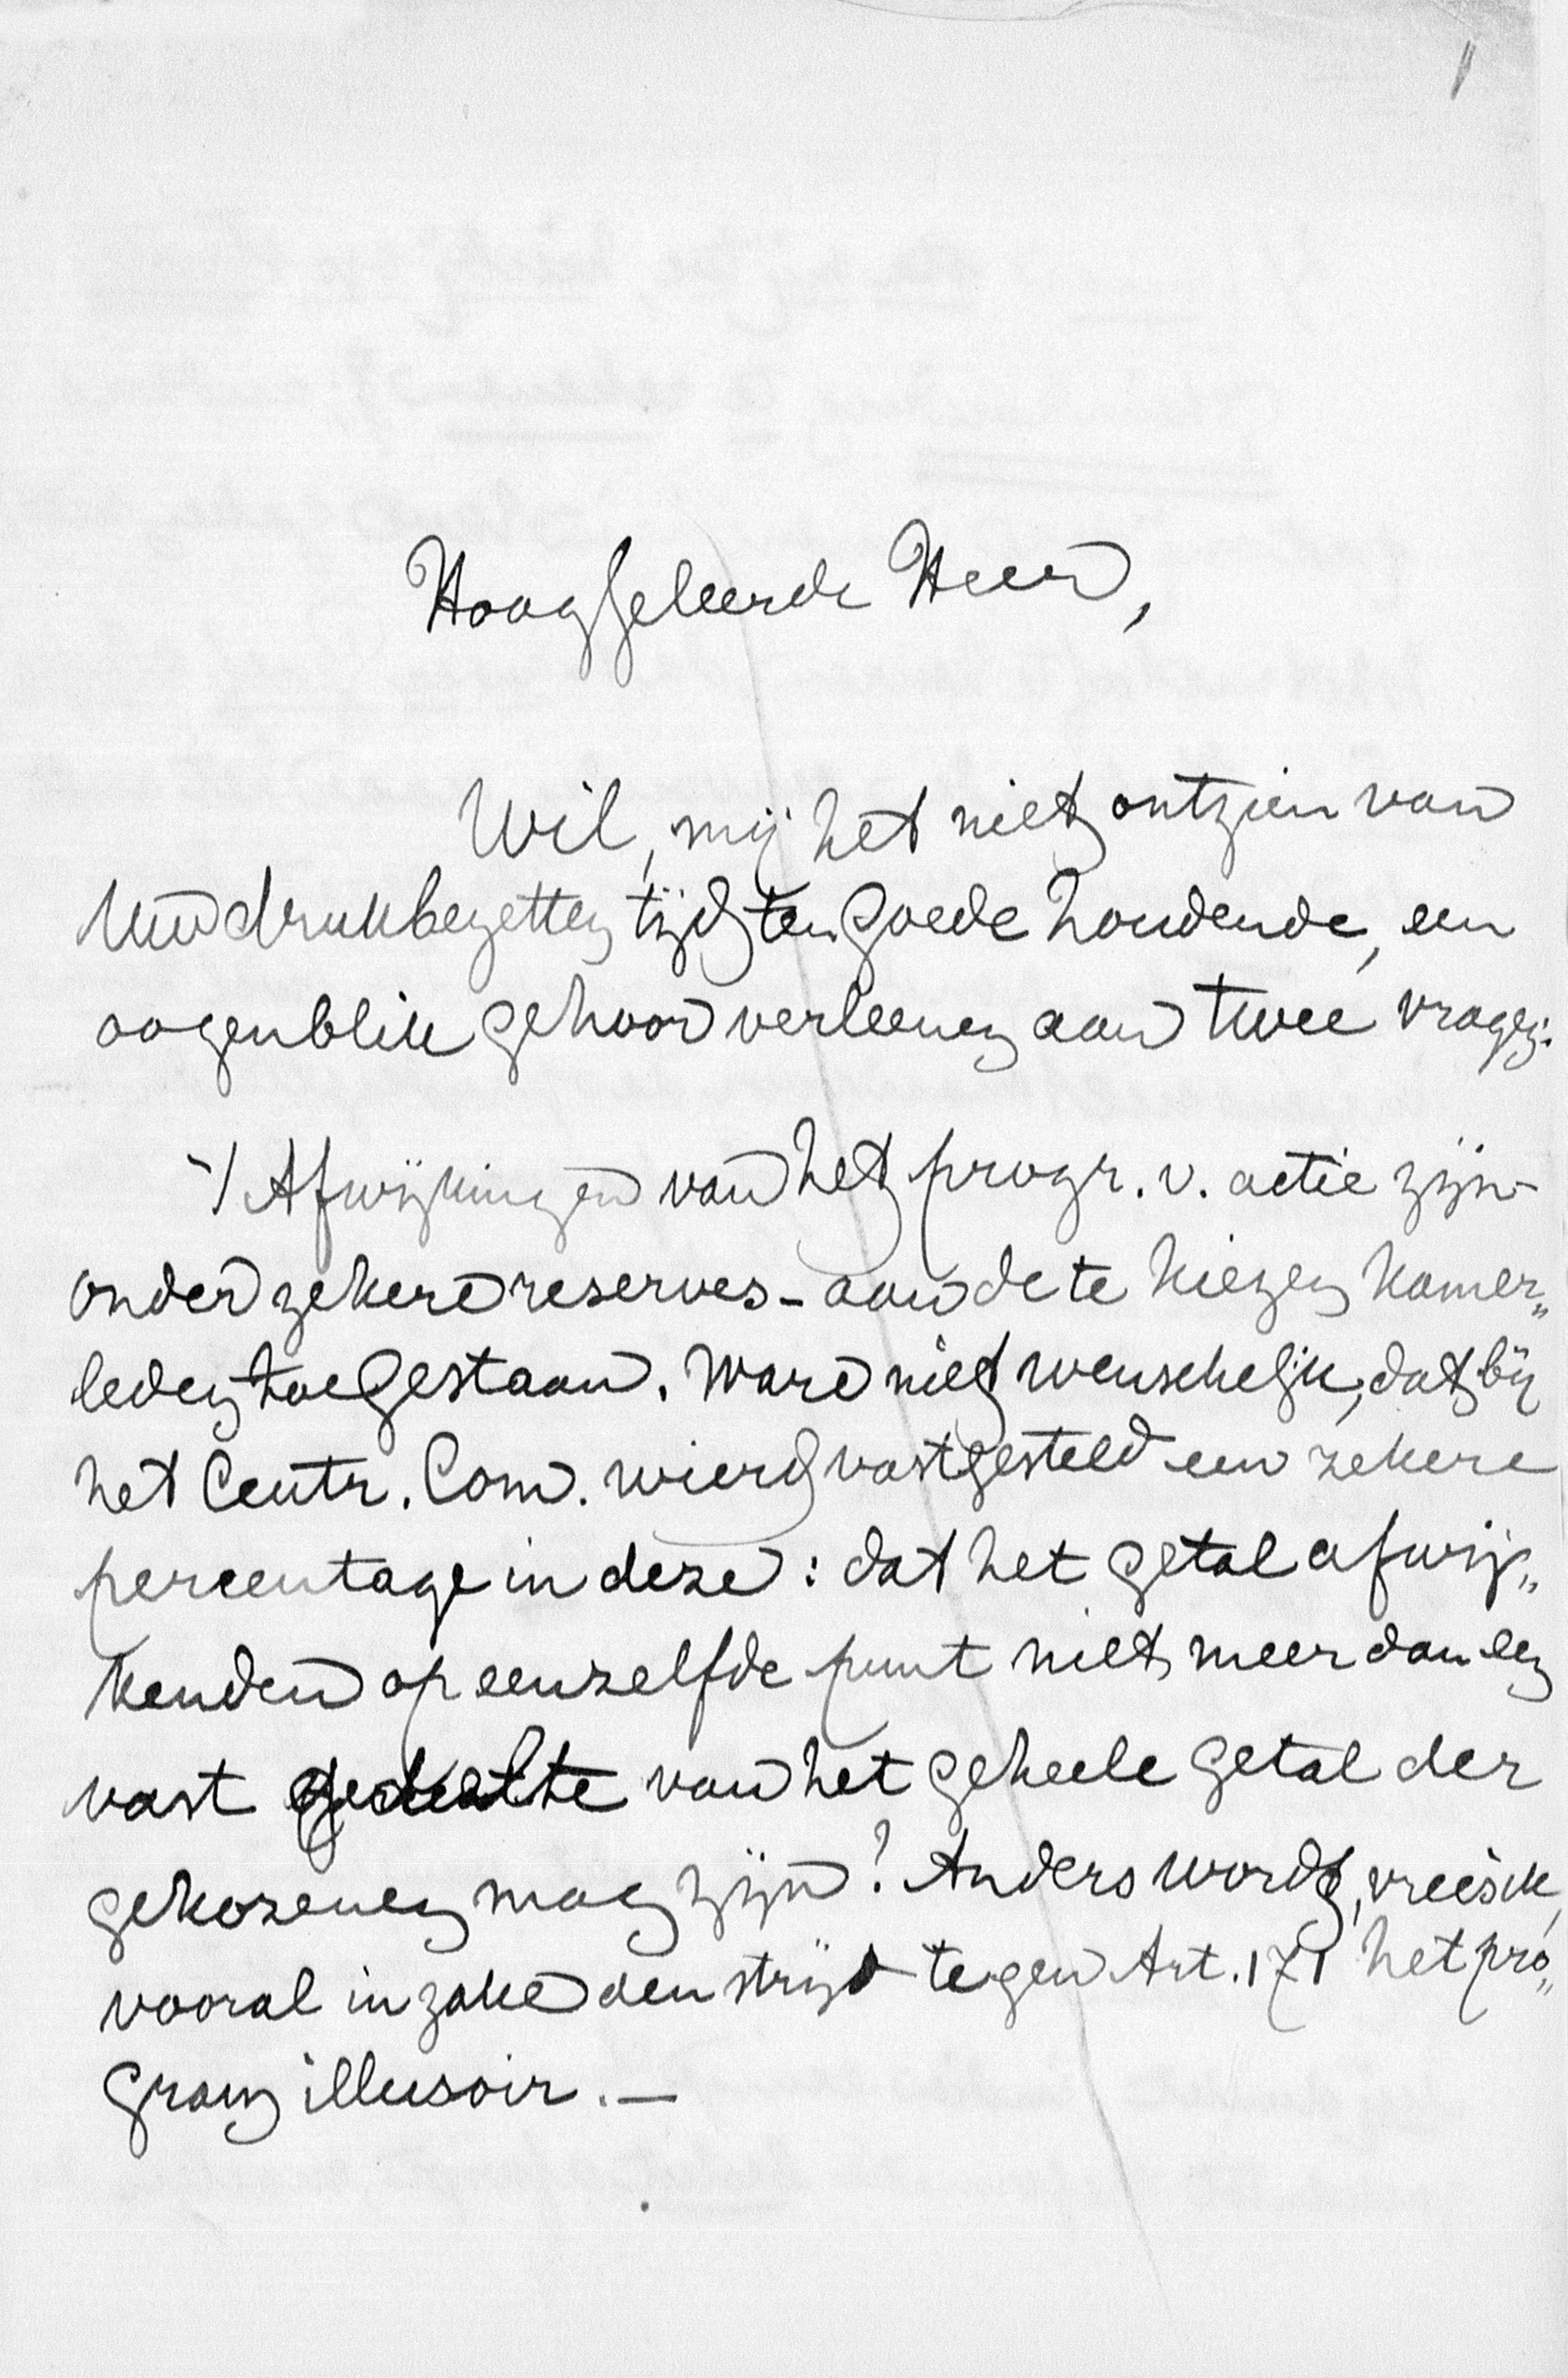 Hooggeleerde Heer,
Wil, mij het niet ontzien van
Uw druk bezetten tijd ten goede houdende, een
oogenblik gehoor verleenen aan twee vragen:
1/ Afwijkingen van het progr. v. actie zijn -
onder zekere reserves - aan de te kiezen Kamer„
leden toegestaan. Ware niet wenschelijk, dat bij
het Centr. Com. wierd vastgesteld een zekere
percentage in deze: dat het getal afwij„
kenden op eenzelfde punt niet meer dan een
vast gedeelte van het geheele getal der
gekozenen mag zijn? Anders wordt, vrees ik,
vooral in zake den strijd tegen Art. 171 het pro„
gram illusoir. —